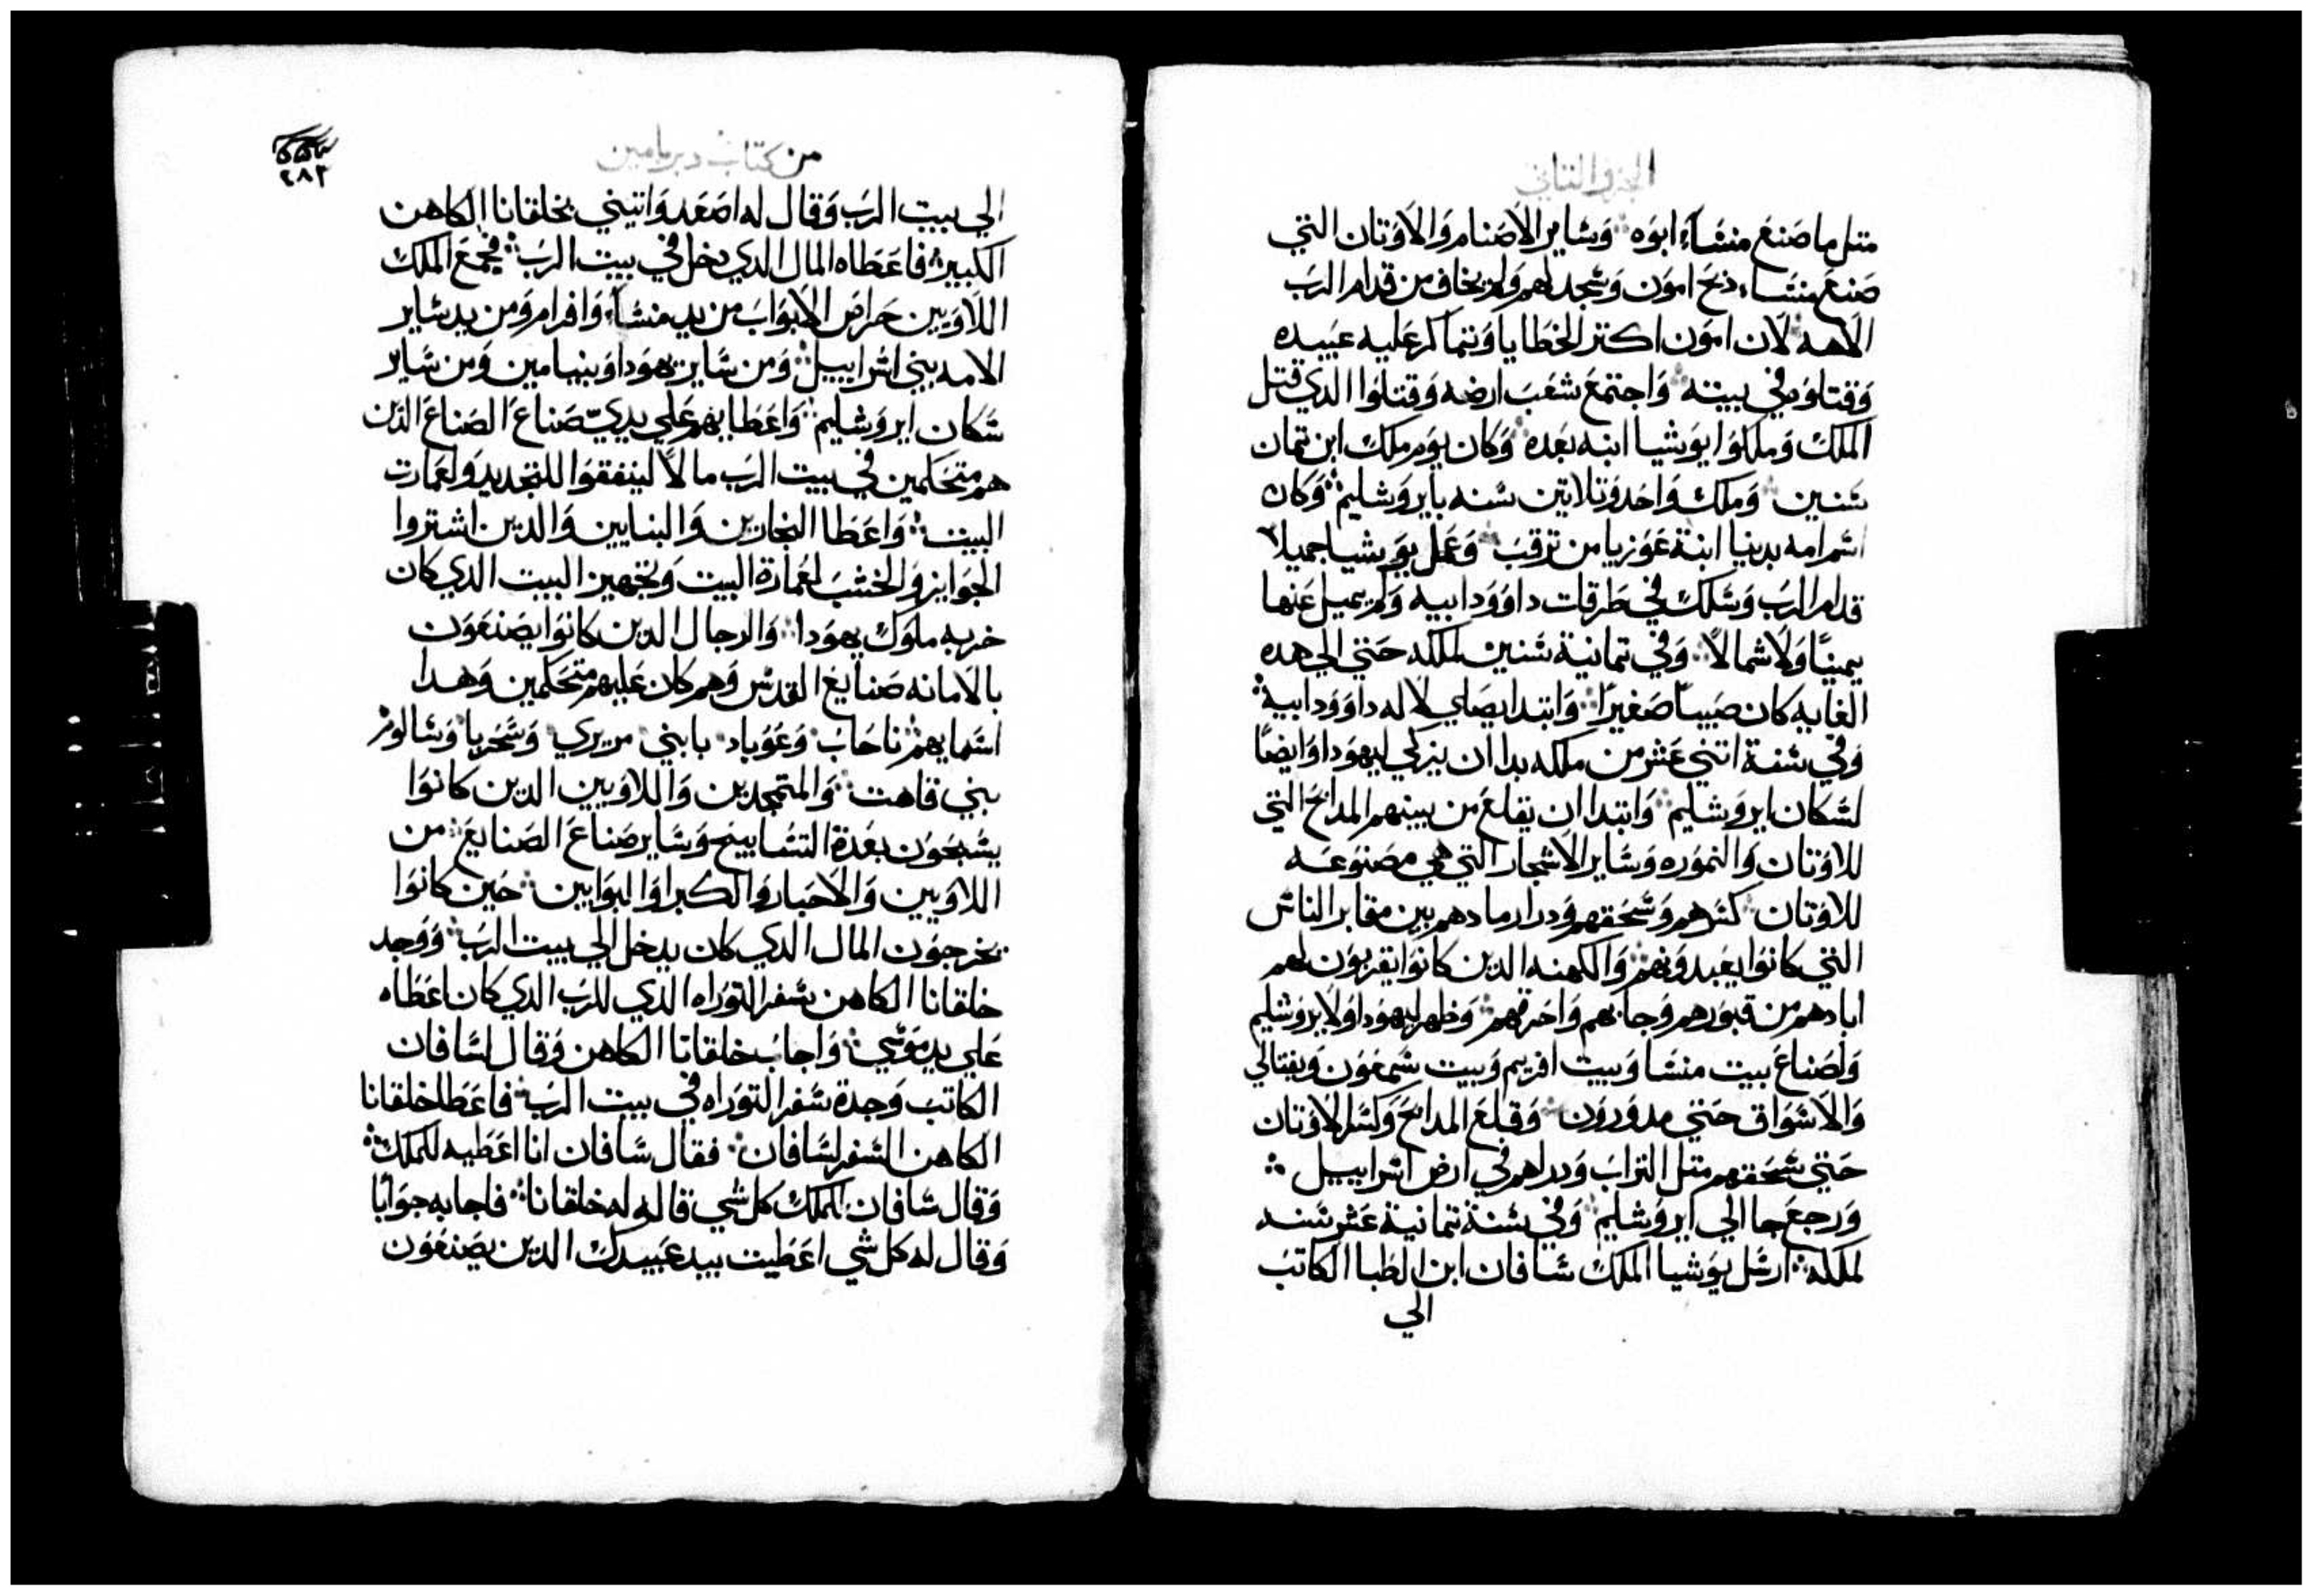 الجزو التاني
متل ما صَنعَ منشَاء ابوَه وَسَاير الاصَنام وَالاوَتان التي
صَنعَ منشَاء ذبحَ اموَن وَسَجد لهم وَلم يخاف من قدام الربَ
الاهه لان اموَن اكتر الخطايا وَتماكر عَليه عَبيده
وَقتلوَه في بيته وَاجتمعَ شعَبَ ارضه وَقتلوَا الدي قتل
الملك وَملكوَا يوَشيا ابنه بعَده وَكان يوَم ملك ابن تمان
سَنين وَملك وَاحَد وَتلاتين سَنه بايروَشليم وَكان
اسَم امه يدينا ابنة عَوَزيا من ترقبَ وَعَمل يوَشيا جميلا
قدام الربَ وَسَلك في طرقات داوَوَد ابيه وَلم يميل عَنها
يمينًا وَلا شمالاً وَفي تمانية سَنين لملكه حَتي الي هده
الغايه كان صَبياً صَغيرًا وَابتدا يصَلي لاله داوَوَد ابيه
وَفي سَنة اتني عَشر من ملكه بدا ان يزكي ليهوَدا وَايضًا
لسَكان ايروَشليم وَابتدا ان يقلعَ من بينهم المدابحَ التي
للاوَتان وَالنموَره وَسَاير الاشجار التي هي مصَنوَعَه
للاوَتان كسَرهم وَسَحَقهم وَدرا رمادهم بين مقابر الناسَ
التي كانوَا يعَبدوَنهم وَالكهنه الدين كانوَا يقربوَن لهم
ابادهم من قبوَرهم وَجابهم وَاحَرقهم وَظهر ليهوَدا وَلايروَشليم
وَلصَناعَ بيت منسَا وَبيت افريم وَبيت سَمعَوَن وَنفتالي
وَالاسَوَاق حَتي مدوَروَن وَقلعَ المدابحَ وَكسَر الاوَتان
حَتي سَحَقهم متل الترابَ وَدراهم في ارض اسَراييل
وَرجعَ جا الي ايروَشليم وَفي سَنة تمانية عَشر سَنه
لملكه ارسَل يوَشيا الملك سَافان ابن الطبا الكاتبَ
الي
من كتاب دبريامين
٢٨٣
الي بيت الربَ وَقال له اصَعَد وَاتيني بخلقانا الكاهن
الكبير فاعَطاه المال الدي دخل في بيت الربَ فجمعَ الملك
اللاوَيين حَراصَ الابوَابَ من يد منسَاء وَافرام وَمن يد سَاير
الامه بني اسَراييل وَمن سَاير يهوَدا وَبنيامين وَمن سَاير
سَكان ايروَشليم وَاعَطايهم عَلي يديّ صَناعَ الصَناعَ الدَن
هم متحَكمين في بيت الربَ مالاً لينفقوَا للتجديد وَلعَمارت
البيت وَاعَطا النجارين وَالبنايين وَالدين اشتروا
الجوَايز وَالخشبَ لعَمارة البيت وَتجهيز البيت الدي كان
خربه ملوَك يهوَدا وَالرجال الدين كانوَا يصَنعَوَن
بالامانه صَنايعَ القدسَ وَهم كان عَليهم متحَكمين وَهدا
اسَمايهم ناحَابَ وَعَوَباد بابني مريري وَسَحَريا وَسَالوم
بني قاهت وَالمتمجدين وَاللاوَيين الدين كانوَا
يسَبحَوَن بعَدة التسَابيحَ وَسَاير صَناعَ الصَنايعَ من
اللاوَيين وَالاحَبار وَالكبرا وَالبوَابين حَين كانوَا
يخرجوَن المال الدي كان يدخل الي بيت الربَ وَوَجد
خلقانا الكاهن سَفر التوَراه الدي للربَ الدي كان اعَطاه
عَلي يد موَسَي وَاجابَ خلقانا الكاهن وَقال لسَافان
الكاتبَ وَجدة سَفر التوَراه في بيت الربَ فاعَطا خلقانا
الكاهن السَفر لسَافان فقال سَافان انا اعَطيه للملك
وَقال سَافان للملك كل شي قاله له خلقانا فاجابه جوَابًا
وَقال له كل شي اعَطيت بيد عَبيدك الدين يصَنعَوَن